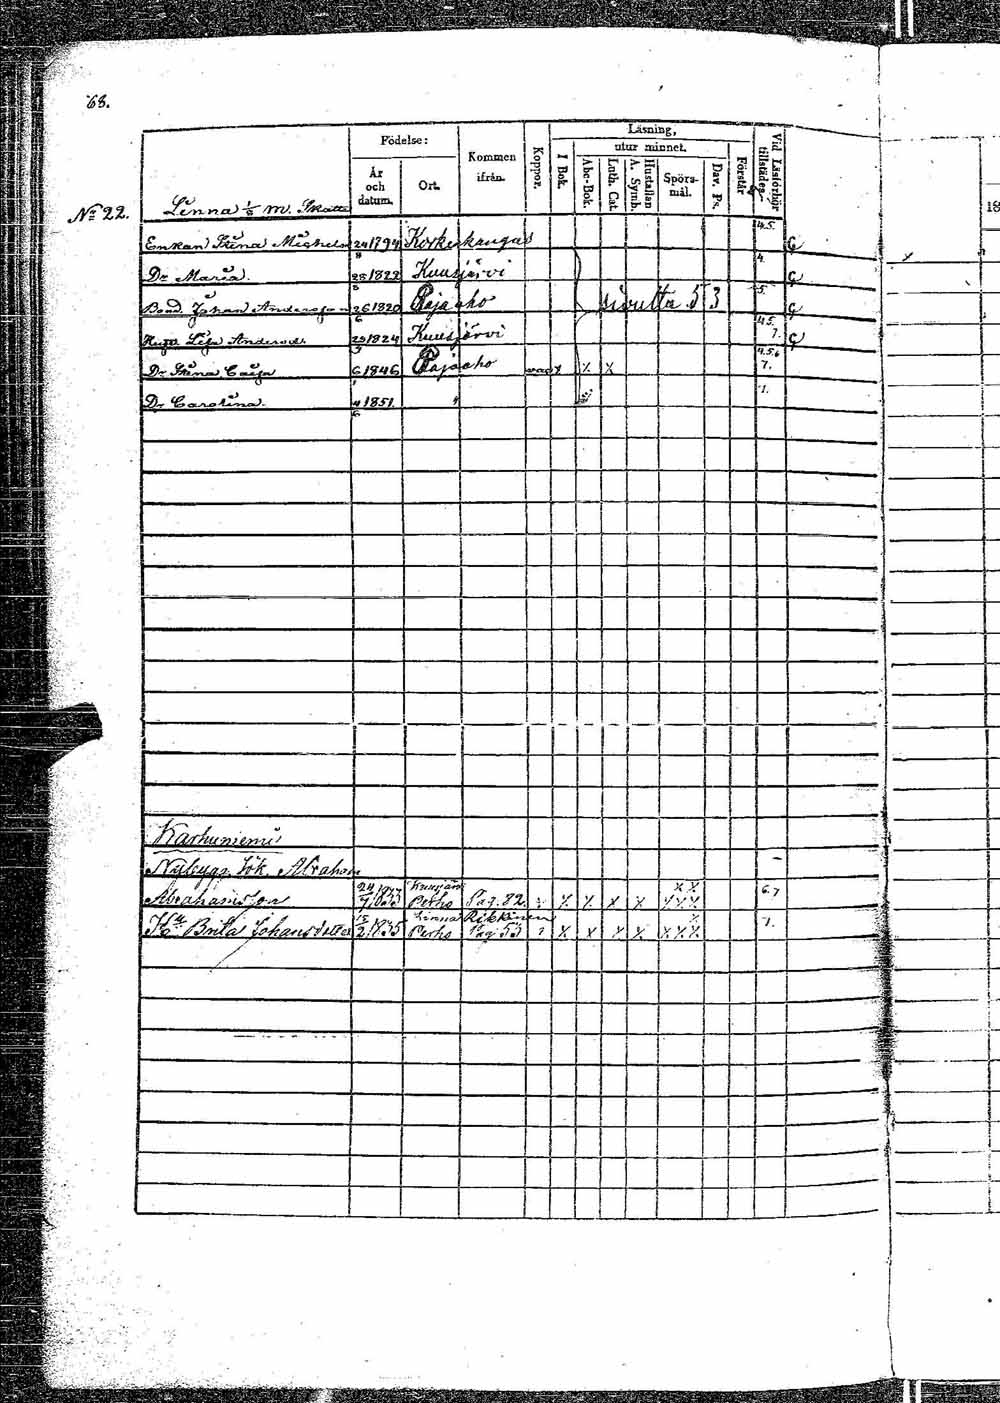 68.
Födelse:
Kommen ifrån.
Koppor.
Läsning,
utur minnet.
Vid Läsförhör tillstädes
År och datum.
Ort.
I Bok.
Abc-Bok.
Luth. Cat.
Hustaflan A. Symb.
Spörs-mål.
Dav. Ps.
Förstår
18
No 22. Linna 1/8 m. Skatte
4.5.
Enkan Stina Michels 24/8 1794 Korkiakangas
4.
Dr Maria 25/8 1822 Kuusjärvi
5.
Bond. Johan Andersson 26/6 1820 Rajaaho sivulta 53
4.5. 7.
Hustr. Lisa Andersdr 1824 Kuusjärvi
4.5.6 7.
Dr Stina Caisa 6/1 1846 Rajaaho vacc x x x
7.
Dr Carolina. 4/6 1851 "
Karhuniemi
Nybygg. Sök. Abraham
Abrahamsson 24/7 Kuusjärvi Perho Pag. 82. x x x x x x x x x 6.7
Hu Brita Johansdotter 15/2 1835 Linna Perho Rikkinen Pag 53 x x x x x x x x 7.